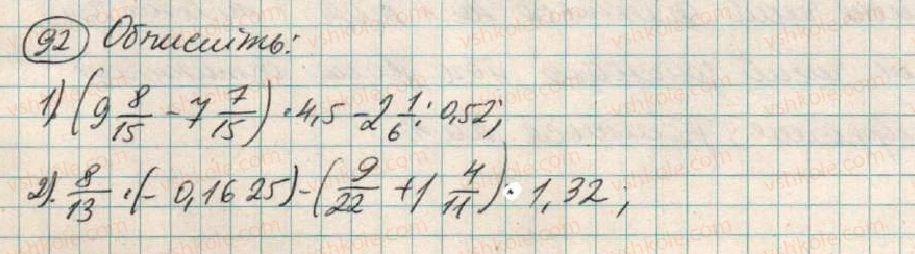 92 Обчисліть:
1) (9 8/15 - 7 7/15) · 4,5 - 2 1/6 : 0,52;
2). 8/13 · (- 0,1625) - (9/22 + 1 4/11) · 1,32;